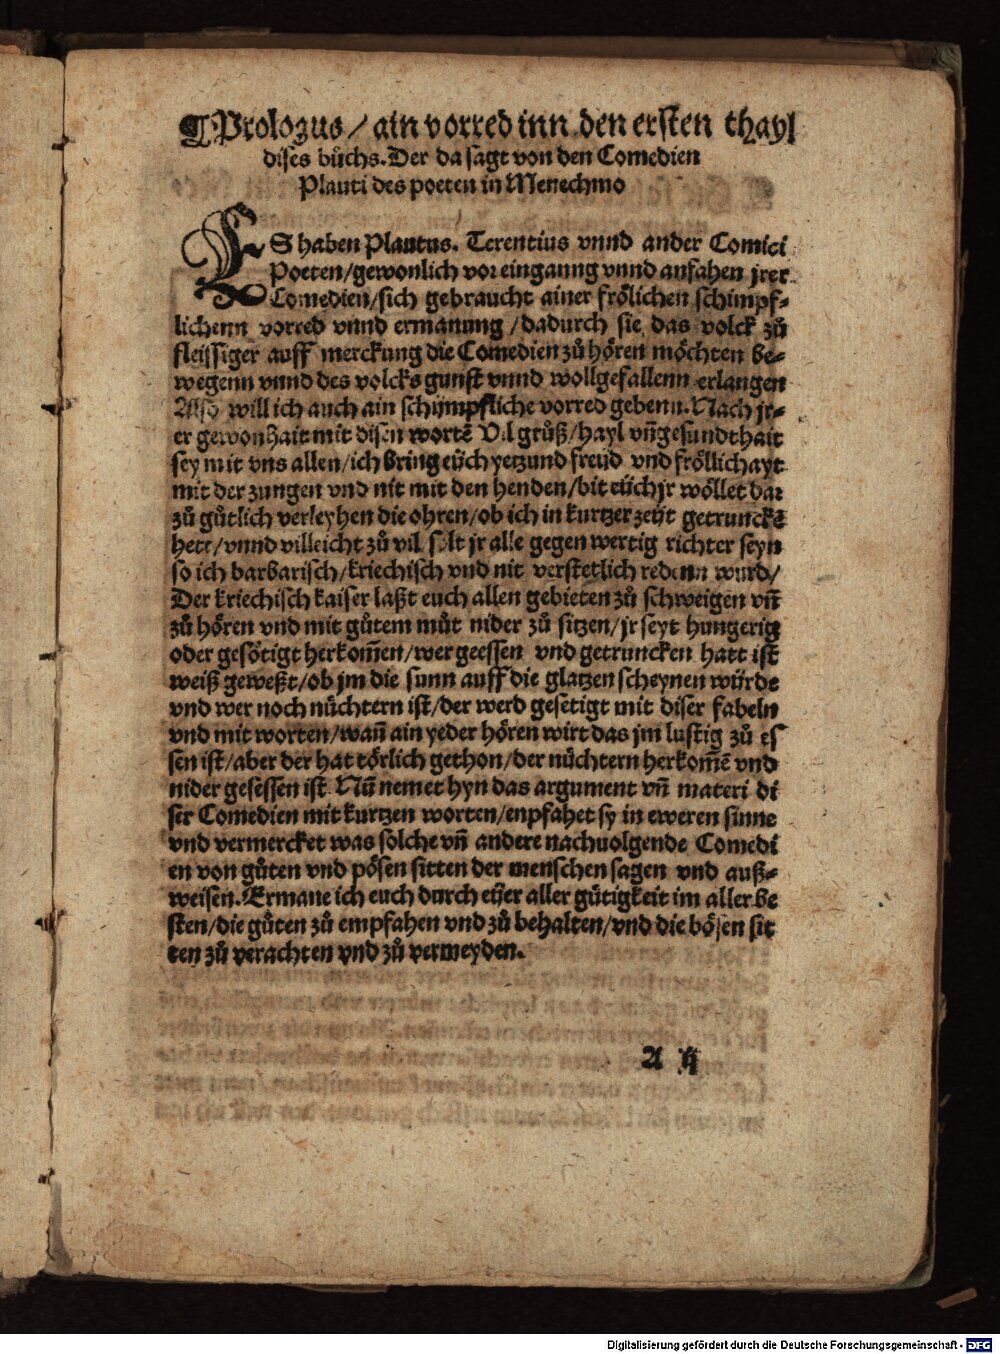 ¶Prologus/ ain vorred inn den ersten thayl
dises bůchs. Der da sagt von den Comedien
Plauti des poeten in Menechmo
ES haben Plautus. Terentius vnnd ander Comici
Poeten/gewonlich vor einganng vnnd anfahen jrer
Comedien/sich gebraucht ainer frölichen schimpf⸗
lichenn vorred vnnd ermanung /dadurch sie das volck zů
fleissiger auff merckung die Comedien zů hören möchten be⸗
wegenn vnnd des volcks gunst vnnd wollgefallenn erlangen
Also will ich auch ain schijmpfliche vorred gebenn. Nach jr⸗
er gewonhait mit disen wortē Vil grůß/hayl vn̄ gesundthait
sey mit vns allen/ich bring eüch yetzund freüd vnd fröllichayt
mit der zungen vnd nit mit den henden/bit eüch jr wöllet dar
zů gůtlich verleyhen die ohren/ob ich in kurtzer zeijt getrunckē
hett/vnnd villeicht zů vil solt jr alle gegen wertig richter seyn
so ich barbarisch/kriechisch vnd nit verstetlich redenn wurd/
Der kriechisch kaiser laßt euch allen gebieten zů schweigen vn̄
zů hören vnd mit gůtem můt nider zů sitzen/jr seyt hungerig
oder gesötigt herkom̄en/wer geessen vnd getruncken hatt ist
weiß geweßt/ob jm die sunn auff die glatzen scheynen würde
vnd wer noch nüchtern ist/der werd gesetigt mit diser fabeln
vnd mit worten/wan̄ ain yeder hören wirt das jm lustig zů es
sen ist/aber der hat törlich gethon/der nüchtern herkom̄ē vnd
nider gesessen ist. Nū nemet hyn das argument vn̄ materi di
ser Comedien mit kurtzen worten/enpfahet sy in eweren sinne
vnd vermercket was solche vn̄ andere nachuolgende Comedi
en von gůten vnd pösen sitten der menschen sagen vnd auß⸗
weisen. Ermane ich euch durch eüer aller gütigkeit im aller be
sten/die gůten zů empfahen vnd zů behalten/vnd die bösen sit
ten zů verachten vnd zů vermeyden.
A ij
Digitalisierung gefördert durch die Deutsche Forschungsgemeinschaft - DFG